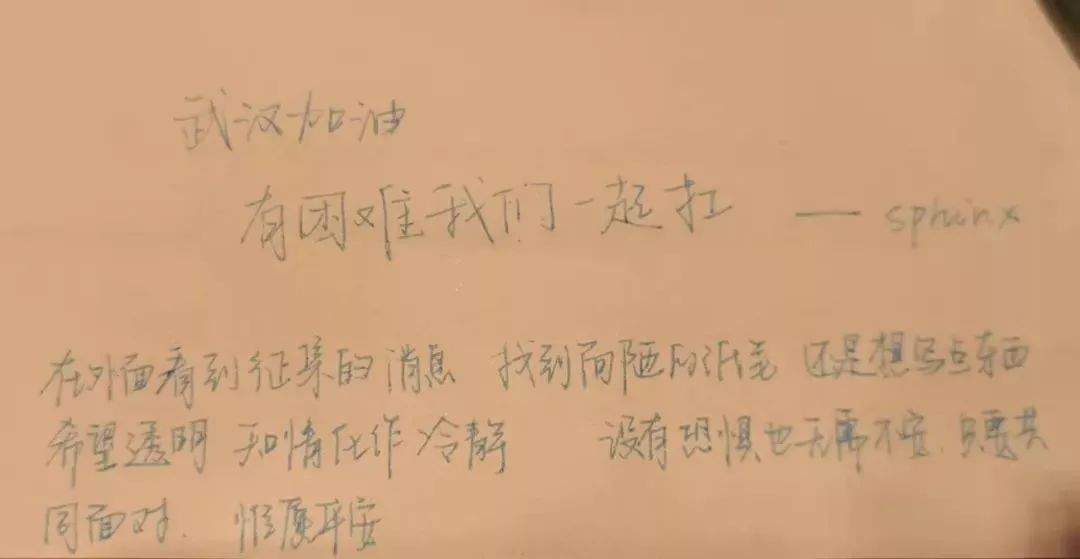 武汉加油
有困难我们一起扛 —— sphinx
在外面看到征集的消息 找到简陋的纸笔 还是想写点东西
希望透明 知情 作 冷静 没有恐惧也无需不安.只要共
同面对. 惟愿平安